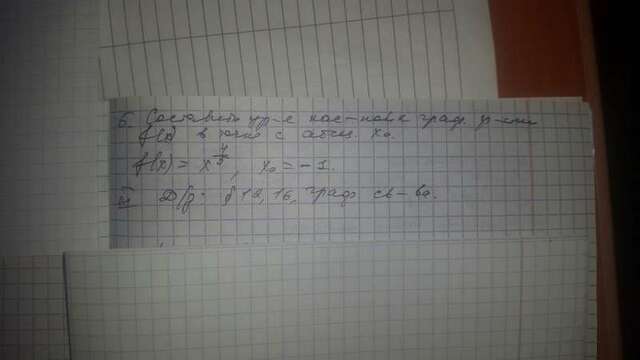 5. Составить ур-е кас-ной к граф. ф-ции
f(x) в точке с абсц. x₀.
f(x) = x, x₀ = -1.
Д/з: § 16, граф. св-ва.